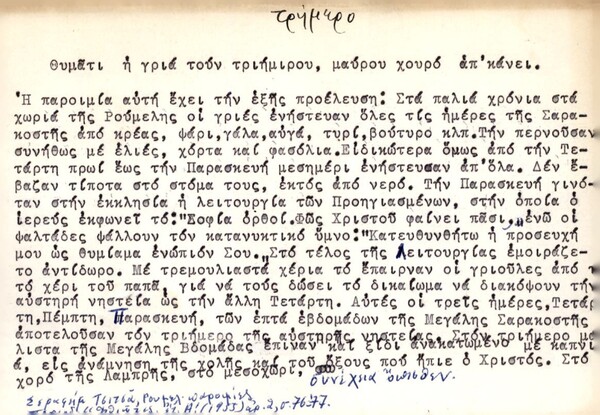 τρήμερο
θυμᾶτι ἡ γριά τούν τριήμιρου, μαύρου χουρό ἀπ'κάνει.
Ἡ παροιμία αὐτή ἔχει τήν ἑξῆς προέλευση: Στά παλιά χρόνια στά
χωριά τῆς Ρούμελης οἱ γριές ἐνήστευαν ὅλες τίς ἡμέρες τῆς Σαρα-
κοστῆς ἀπό κρέας, ψάρι,γάλα,αὐγά, τυρί,βούτυρο κλπ.Τήν περνοῦσαν
συνήθως μέ ἐλιές, χόρτα καί φασόλια.Εἰδικώτερα ὅμως ἀπό τήν Τε-
τάρτη πρωί ἕως τήν Παρασκευή μεσημέρι ἐνήστευσαν ἀπ'ὅλα. Δέν ἔ-
βαζαν τίποτα στό στόμα τους, ἐκτός ἀπό νερό. Τήν Παρασκευή γινό-
ταν στήν ἐκκλησία ἡ λειτουργία τῶν Προηγιασμένων, στήν ὁποία ὁ
ἱερεύς ἐκφωνεῖ τό:"Σοφία ὀρθοί.Φῶς Χριστοῦ φαίνει πᾶσι," ἐνῶ οἱ
ψαλτάδες ψάλλουν τόν κατανυκτικό ὕμνο:"Κατευθυνθήτω ἡ προσευχή
μου ὡς θυμίαμα ἐνώπιόν Σου."Στό τέλος τῆς Λειτουργίας ἐμοιράζε-
το ἀντίδωρο. Μέ τρεμουλιαστά χέρια τό ἔπαιρναν οἱ γριοῦλες ἀπό
τό χέρι τοῦ παπᾶ, γιά νά τούς δώσει τό δικαίωμα νά διακόψουν τήν
αὐστηρή νηστεία ὡς τήν ἄλλη Τετάρτη. Αὐτές οἱ τρεῖς ἡμέρες,Τετάρ-
τη,Πέμπτη, Παρασκευή, τῶν ἑπτά ἑβδομάδων τῆς Μεγάλης Σαρακοστῆς
ἀποτελοῦσαν τόν τριήμερο τῆς αὐστηρῆς νηστείας. Στόν τριήμερο μά-
λιστα τῆς Μεγάλης Βδομάδας ἔπιναν καί ξίδι ἀνακατωμένο μέ καπνι-
ά, εἰς ἀνάμνηση τῆς χολῆς καί τοῦ ὄξους πού ἤπιε ὁ Χριστός. Στό
χορό τῆς Λαμπρῆς, στό μεσοχώρι, συνέχεια ὄπισθεν.
Σεραφείμ Τσιτσᾶ, Ρουμελ. παροιμίες,
(1955) ἀρ. 2, σ. 76-77.